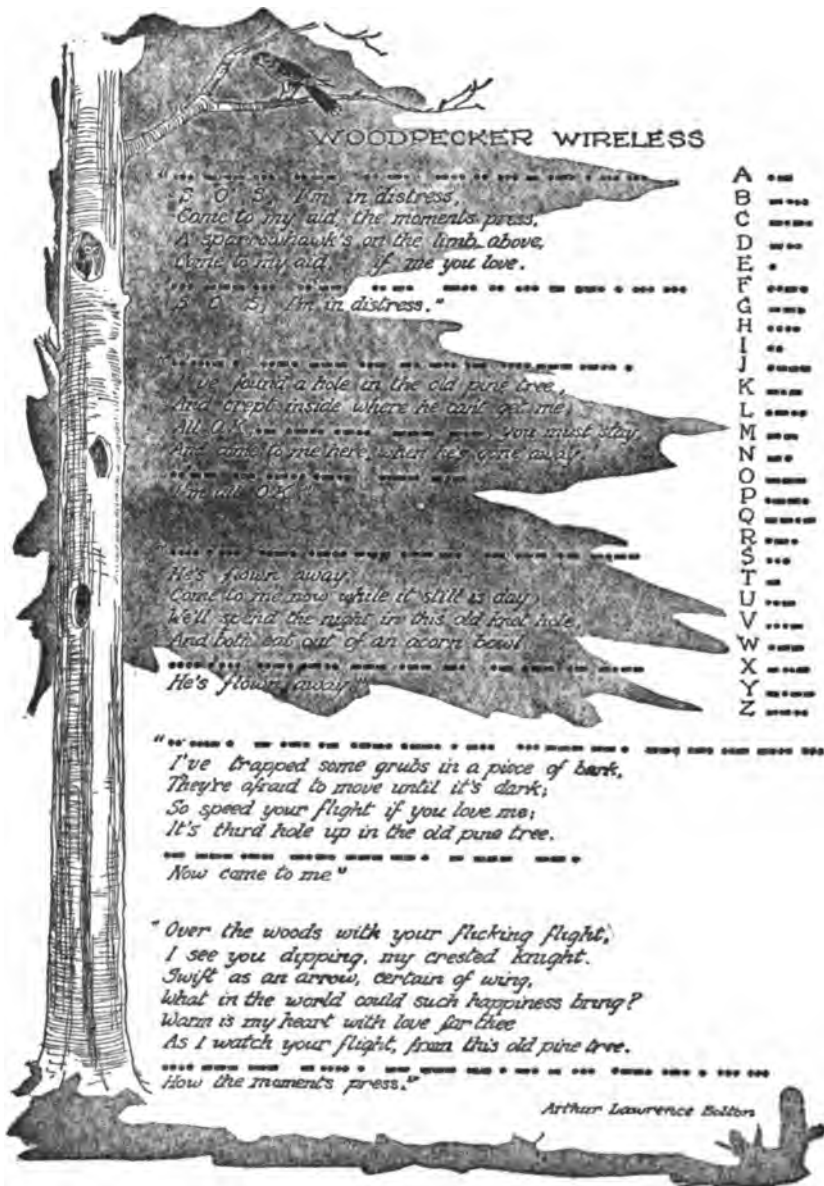 WOODPECKER WIRELESS
S O S, I'm in distress,
Come to my aid, the moments press,
A sparrowhawk's on the limb above,
Come to my aid, if me you love.
S O S, I'm in distress."
I've found a hole in the old pine tree,
And crept inside where he can't get me,
All O.K., you must stay,
And come to me here, when he's gone away.
I'm all O.K."
He's flown away,
Come to me now while it still is day,
We'll spend the night in this old knot hole,
And both eat out of an acorn bowl
He's flown away."
I've trapped some grubs in a piece of bark,
They're afraid to move until it's dark;
So speed your flight if you love me;
It's third hole up in the old pine tree.
Now come to me"
"Over the woods with your flicking flight,
I see you dipping, my crested knight.
Swift as an arrow, certain of wing,
What in the world could such happiness bring?
Warm is my heart with love for thee
As I watch your flight, from this old pine tree.
How the moments press."
Arthur Lawrence Bolton
A
B
C
D
E
F
G
H
I
J
K
L
M
N
O
P
Q
R
S
T
U
V
W
X
Y
Z